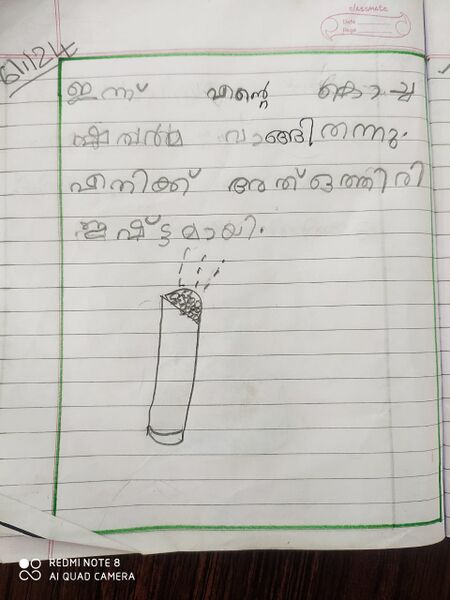 classmate
Date
Page
6/1/24
ഇന്ന് എന്റെ കൊച്ച
വാങ്ങിതന്നു.
എനിക്ക് അത് ഒത്തിരി
ഇഷ്ട്ടമായി.
REDMI NOTE 8
AI QUAD CAMERA